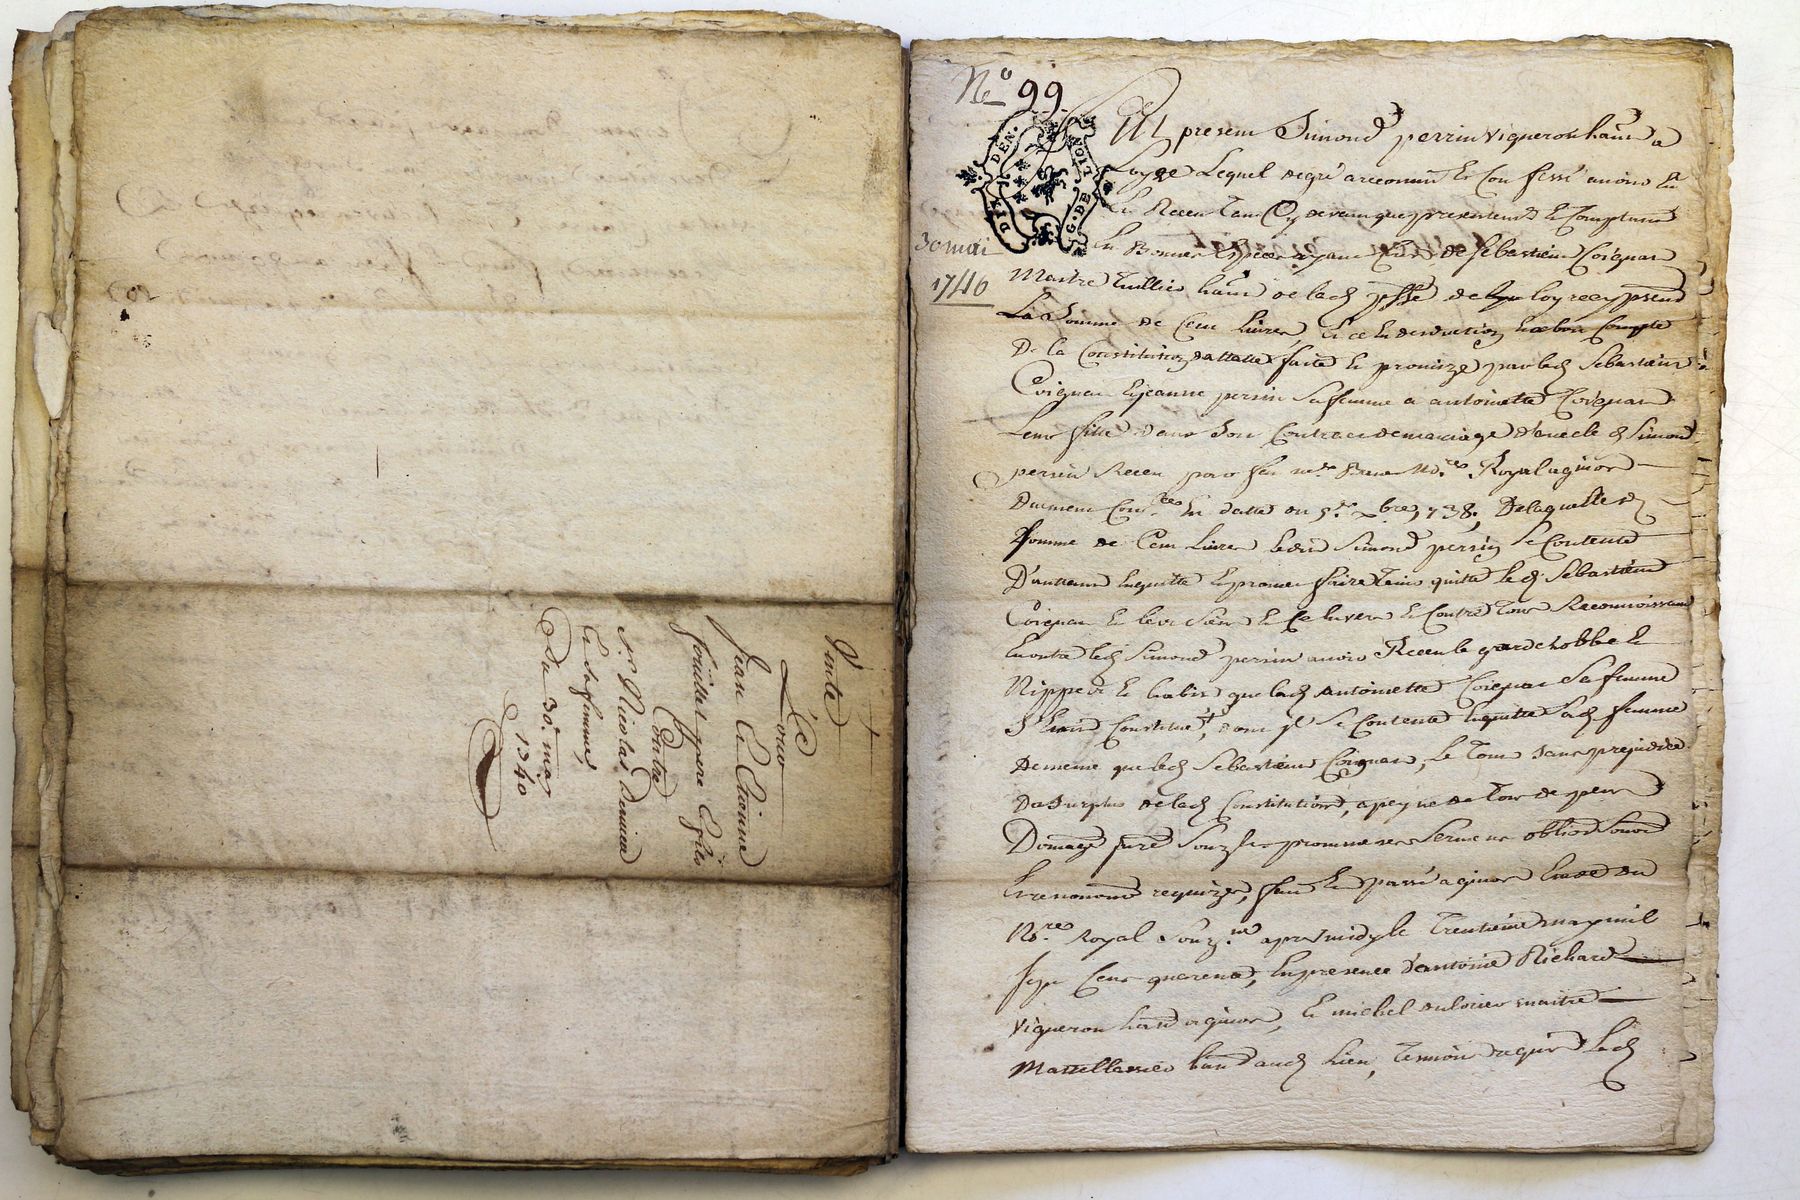 Vente
Pour
Jean et Etienne
foüillat pere et fils
Contre
Sr Nicolas
et sa femme,
Du 30e may
1740
No 99
DIX DEN.
G. DE LION
30 mai
1740
Fut present Simond perrin vigneron habt a
Loyze Lequel de gré a reconnu et Confessé avoir Eu
et Receu tant Cy devant que presentement et Comptant
En Bonnes Especes ayant Cours de Sebastien Coignar
Maitre habt de lad psse de Loyze cy present
La Somme de Cent Livres, et ce En deduction et a bon Compte
De la Constitution dottalle faite et promize par led Sebastien
Coignar et jeanne perrin Sa femme a antoinette Coignar
Leur fille dans Son Contract de mariage d'avec le d Simond
perrin Receu par feu me Nore Royal a givor
Dument Conlée En datte du 5e xbre 1738, De laquelle d
Somme de Cent Livres ledit Simond perrin Se Contente
D'autant En quitte et promet faire tenir quitte led Sebastien
Coignar et les Siens et Envers et Contre tous Reconnoissant
En outre led Simond perrin avoir Receu le garderobbe et
Nippes et habits que lad Antoinette Coignar Sa femme
S'Etoit Constitué, dont il Se Contente En quitte Sad femme
De meme que led Sebastien Coignar, Le tout Sans prejudice
Du Surplus de lad Constitution, a peyne de tous depens
Domages jurés Souz les promesses Serment obligaons Soumons
et renonons requizes, fait Et passé a givor Etude du
Nore Royal Souzné apres midy le trentieme may mil
Sept Cent quarente, En presence d'antoine Richard
vigneron habt a givor, et michel maitre
habt aud Lieu, temoins requis led